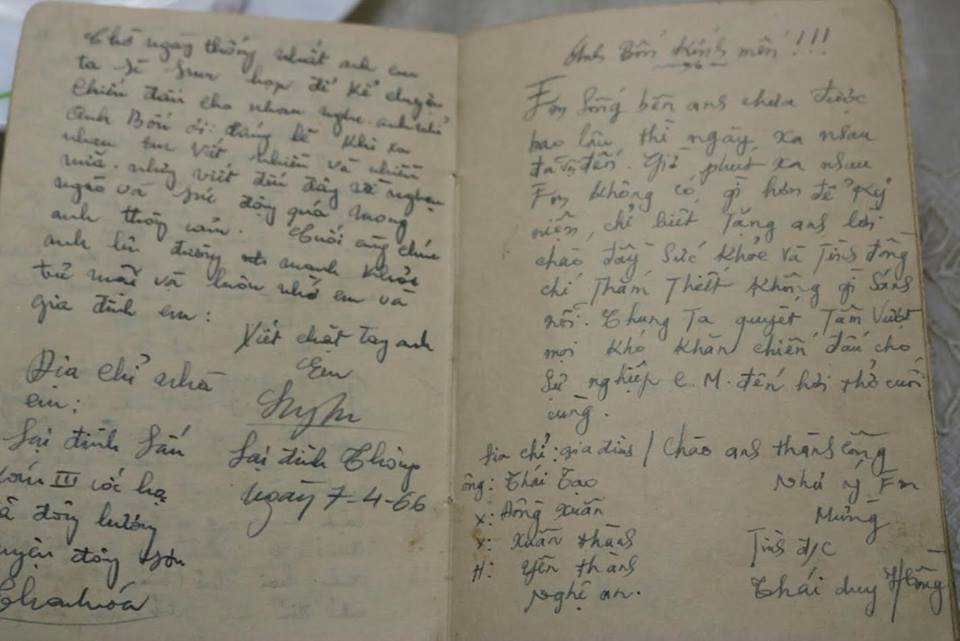 Chờ ngày thống nhất anh em
ta sẽ sum họp để kể chuyện
chiến đấu cho nhau nghe. anh nhé
Anh Bốn ơi: đáng lẽ khi xa
nhau em viết nhiều và nhiều
nữa. nhưng viết đến đây vì nghẹn
ngào và xúc động quá mong
anh thông cảm. Cuối cùng chúc
anh lên đường mạnh khỏe
trẻ mãi và luôn nhớ em và
gia đình em:
Xiết chặt tay anh
Em
Địa chỉ nhà
em:
Lại đình Sắn
xóm III cốc hạ
xã đông hương
huyện đông sơn
Thanh hóa
Lại đình Thông
Ngày 7-4-66
Anh Bốn Kính mến!!!
Em Sống bên anh chưa được
bao lâu thì ngày xa nhau
đã đến. Giờ phút xa nhau
Em không có gì hơn để kỷ
niệm, chỉ biết Tặng anh lời
chào đầy Sức khỏe và Tình đồng
chí Thắm Thiết không gì Sánh
nổi. Chúng Ta quyết Tâm Vượt
mọi khó khăn chiến đấu cho
Sự nghiệp C.M. đến hơi thở cuối
cùng.
Địa chỉ: gia đình / Chào anh thành công
ông: Thái Tạo
x: Đông xuân
x: xuân thành
H: Yên thành
Nghệ an.
Như ý Em
Mừng
Tình đ/c
Thái duy Hồng